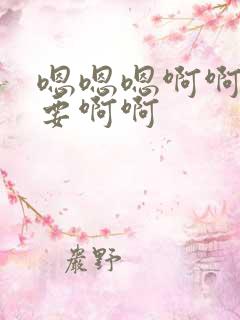 嗯嗯嗯啊啊
要啊啊
嚴野